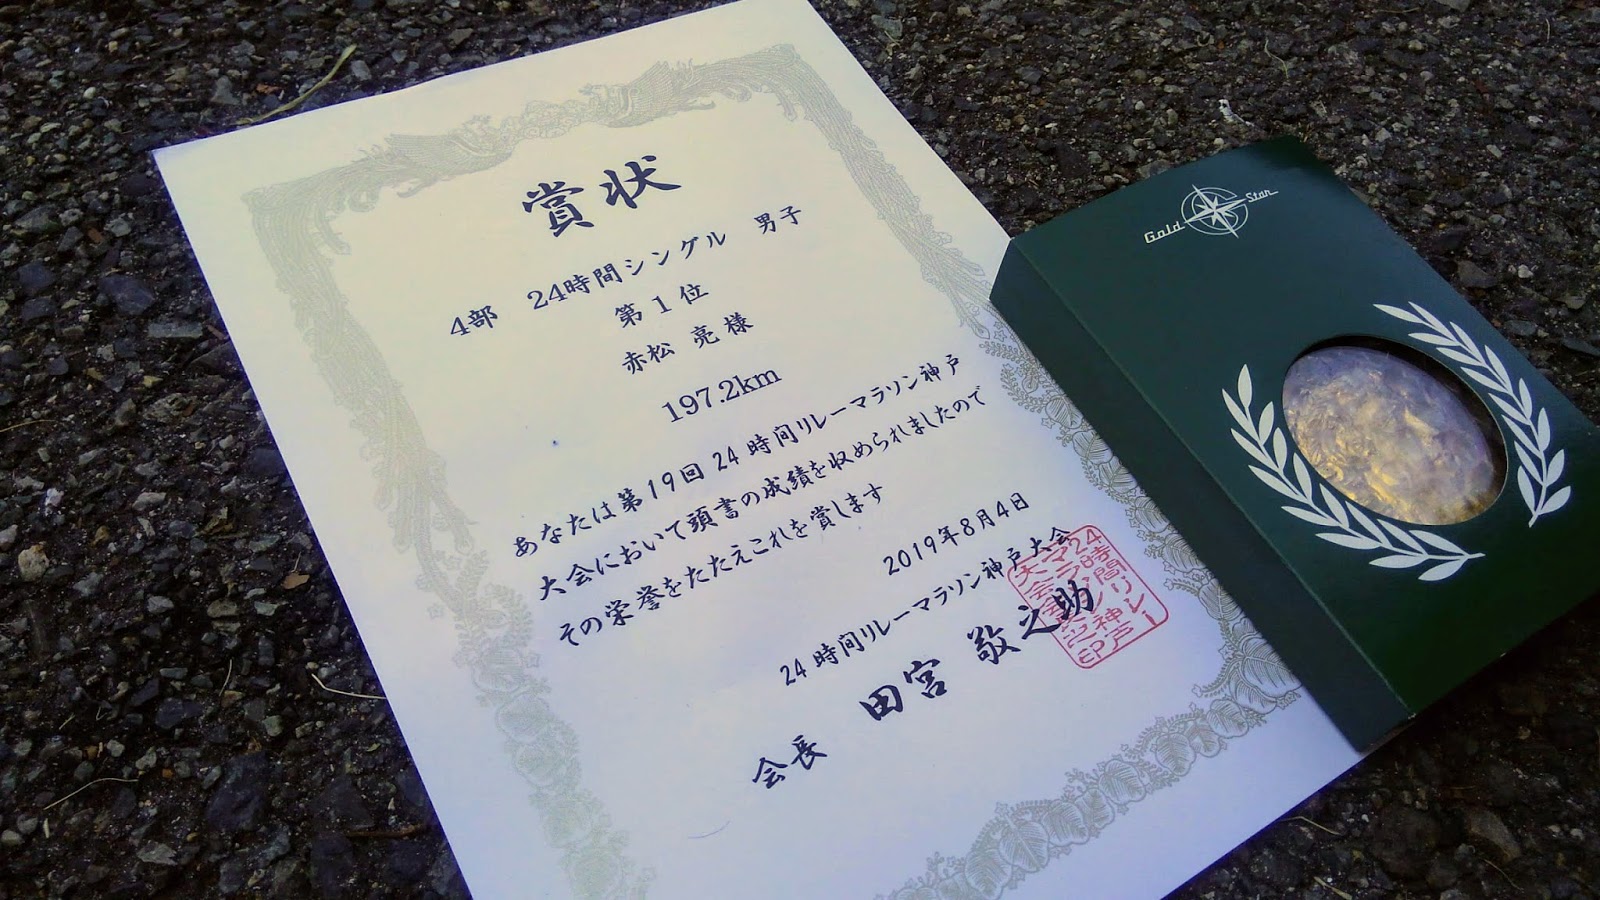 賞状
4部 24時間シングル 男子
第1位
赤松 亮 様
197.2km
あなたは第19回24時間リレーマラソン神戸
大会において頭書の成績を収められましたので
その栄誉をたたえこれを賞します
2019年8月4日
24時間リレーマラソン神戸大会
会長 田宮 敬之助
Gold Star